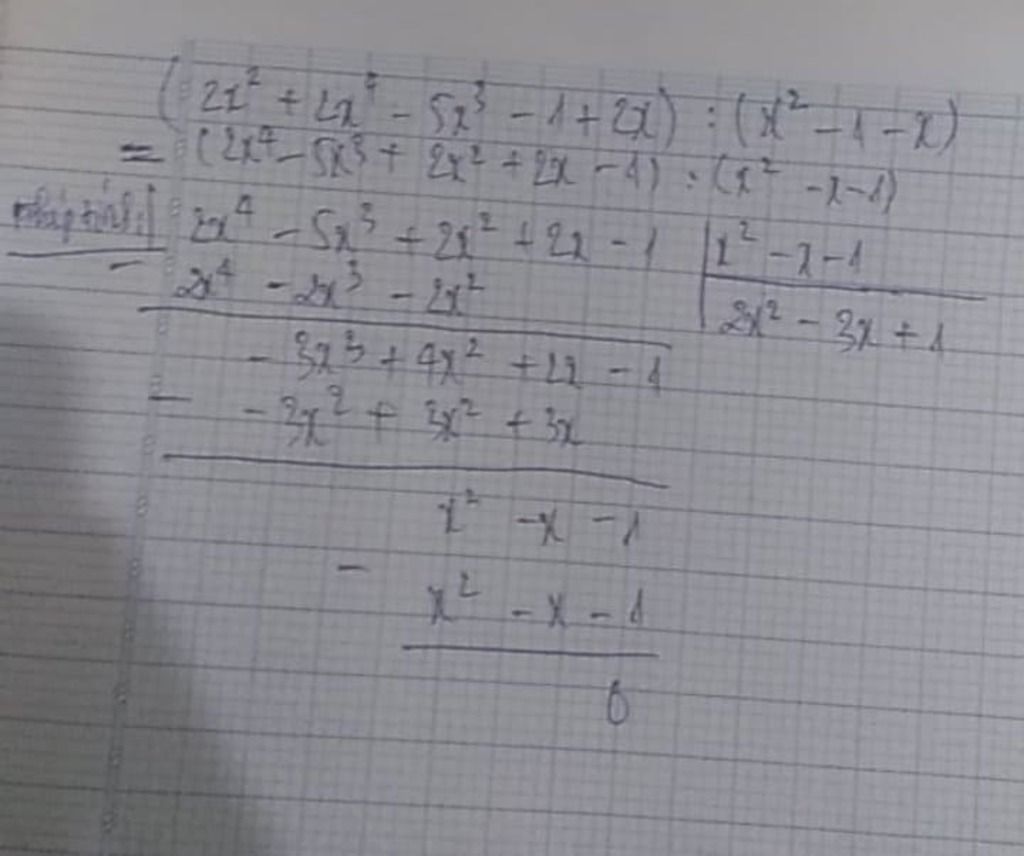 (2x² + 2x⁴ - 5x³ - 1 + 2x) : (x² - 1 - x)
= (2x⁴ - 5x³ + 2x² + 2x - 1) : (x² - x - 1)
2x⁴ - 5x³ + 2x² + 2x - 1 | x² - x - 1
- 2x⁴ - 2x³ - 2x² | 2x² - 3x + 1
- 3x³ + 4x² + 2x - 1
- - 3x² + 3x² + 3x
x² - x - 1
- x² - x - 1
0